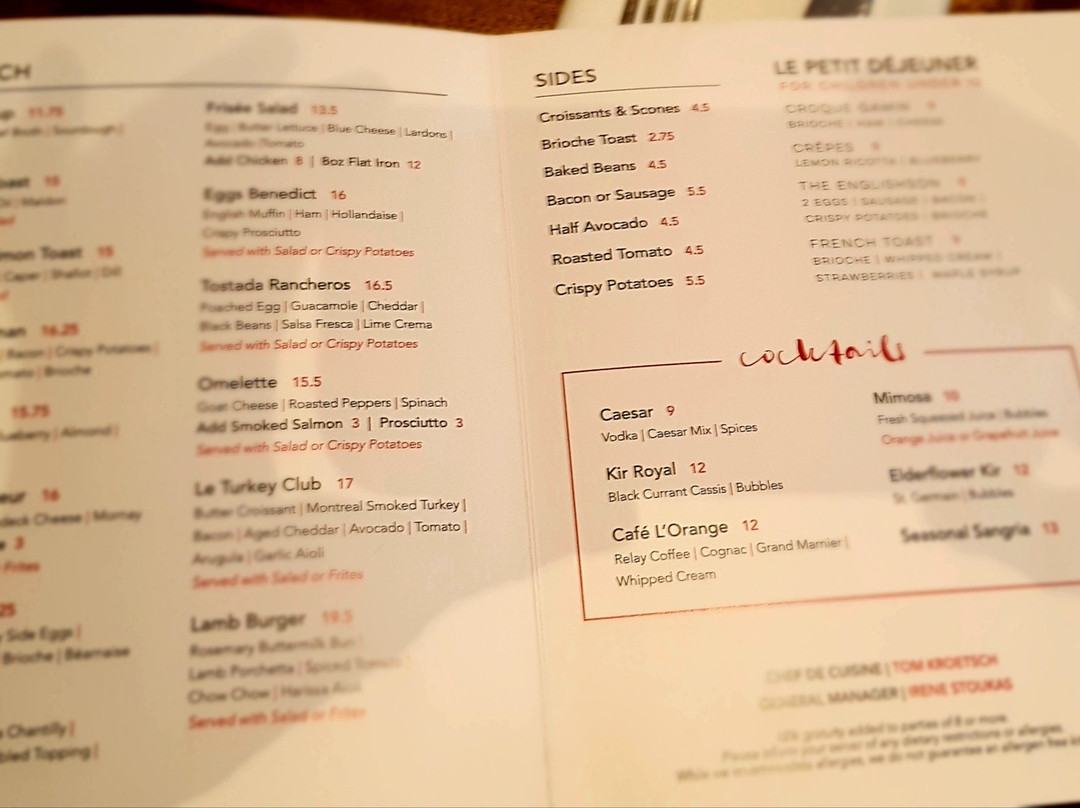 CH
11.75
Sourdough |
15
Maldon
mon Toast 15
Caper | Shallot | Dill
16.25
Bacon | Crispy Potatoes |
Brioche
15.75
Almond |
eur 16
Cheese | Mornay
3
Frites
25
Side Eggs |
Brioche | Béarnaise
Chantilly |
Topping |
Frisée Salad 13.5
Egg | Butter Lettuce | Blue Cheese | Lardons |
Avocado | Tomato
Add Chicken 8 | 8oz Flat Iron 12
Eggs Benedict 16
English Muffin | Ham | Hollandaise |
Crispy Prosciutto
Served with Salad or Crispy Potatoes
Tostada Rancheros 16.5
Poached Egg | Guacamole | Cheddar |
Black Beans | Salsa Fresca | Lime Crema
Served with Salad or Crispy Potatoes
Omelette 15.5
Goat Cheese | Roasted Peppers | Spinach
Add Smoked Salmon 3 | Prosciutto 3
Served with Salad or Crispy Potatoes
Le Turkey Club 17
Butter Croissant | Montreal Smoked Turkey |
Bacon | Aged Cheddar | Avocado | Tomato |
Arugula | Garlic Aioli
Served with Salad or Frites
Lamb Burger 19.5
Rosemary Buttermilk Bun |
Lamb Porchetta | Spiced Tomato |
Chow Chow | Harissa Aioli
Served with Salad or Frites
SIDES
Croissants & Scones 4.5
Brioche Toast 2.75
Baked Beans 4.5
Bacon or Sausage 5.5
Half Avocado 4.5
Roasted Tomato 4.5
Crispy Potatoes 5.5
LE PETIT DÉJEUNER
FOR CHILDREN UNDER 10
CROQUE GAMIN 9
BRIOCHE | HAM | CHEESE
CRÊPES 9
LEMON RICOTTA | BLUEBERRY
THE ENGLISHSON 9
2 EGGS | SAUSAGE | BACON |
CRISPY POTATOES | BRIOCHE
FRENCH TOAST 9
BRIOCHE | WHIPPED CREAM |
STRAWBERRIES | MAPLE SYRUP
cocktails
Caesar 9
Vodka | Caesar Mix | Spices
Kir Royal 12
Black Currant Cassis | Bubbles
Café L'Orange 12
Relay Coffee | Cognac | Grand Marnier |
Whipped Cream
Mimosa 10
Fresh Squeezed Juice | Bubbles
Orange Juice or Grapefruit Juice
Elderflower Kir 12
St. Germain | Bubbles
Seasonal Sangria 13
CHEF DE CUISINE | TOM KROETSCH
GENERAL MANAGER | IRENE STOUKAS
gratuity added to parties of 8 or more.
Please inform your server of any dietary restrictions or allergies.
While we accommodate allergies, we do not guarantee an allergen free